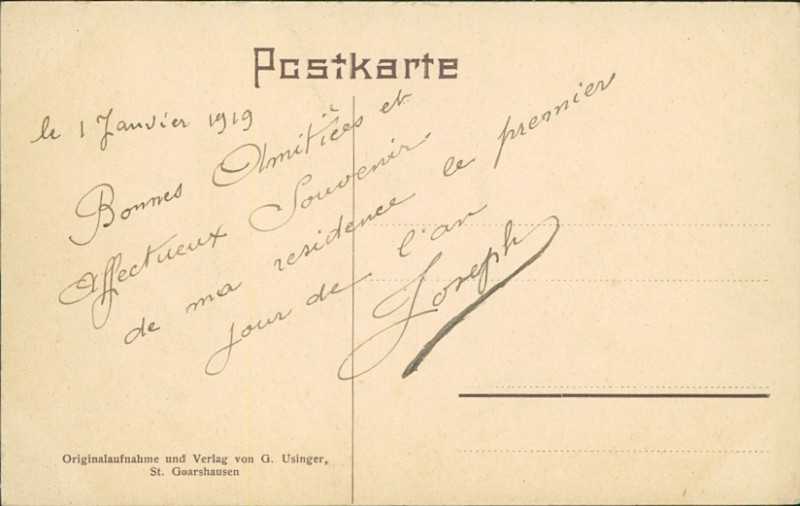 Postkarte
le 1 Janvier 1919
Bonnes Amitiées et
Affectueux Souvenir
de ma residence le premier
jour de l'an
Joseph
Originalaufnahme und Verlag von G. Usinger,
St. Goarshausen